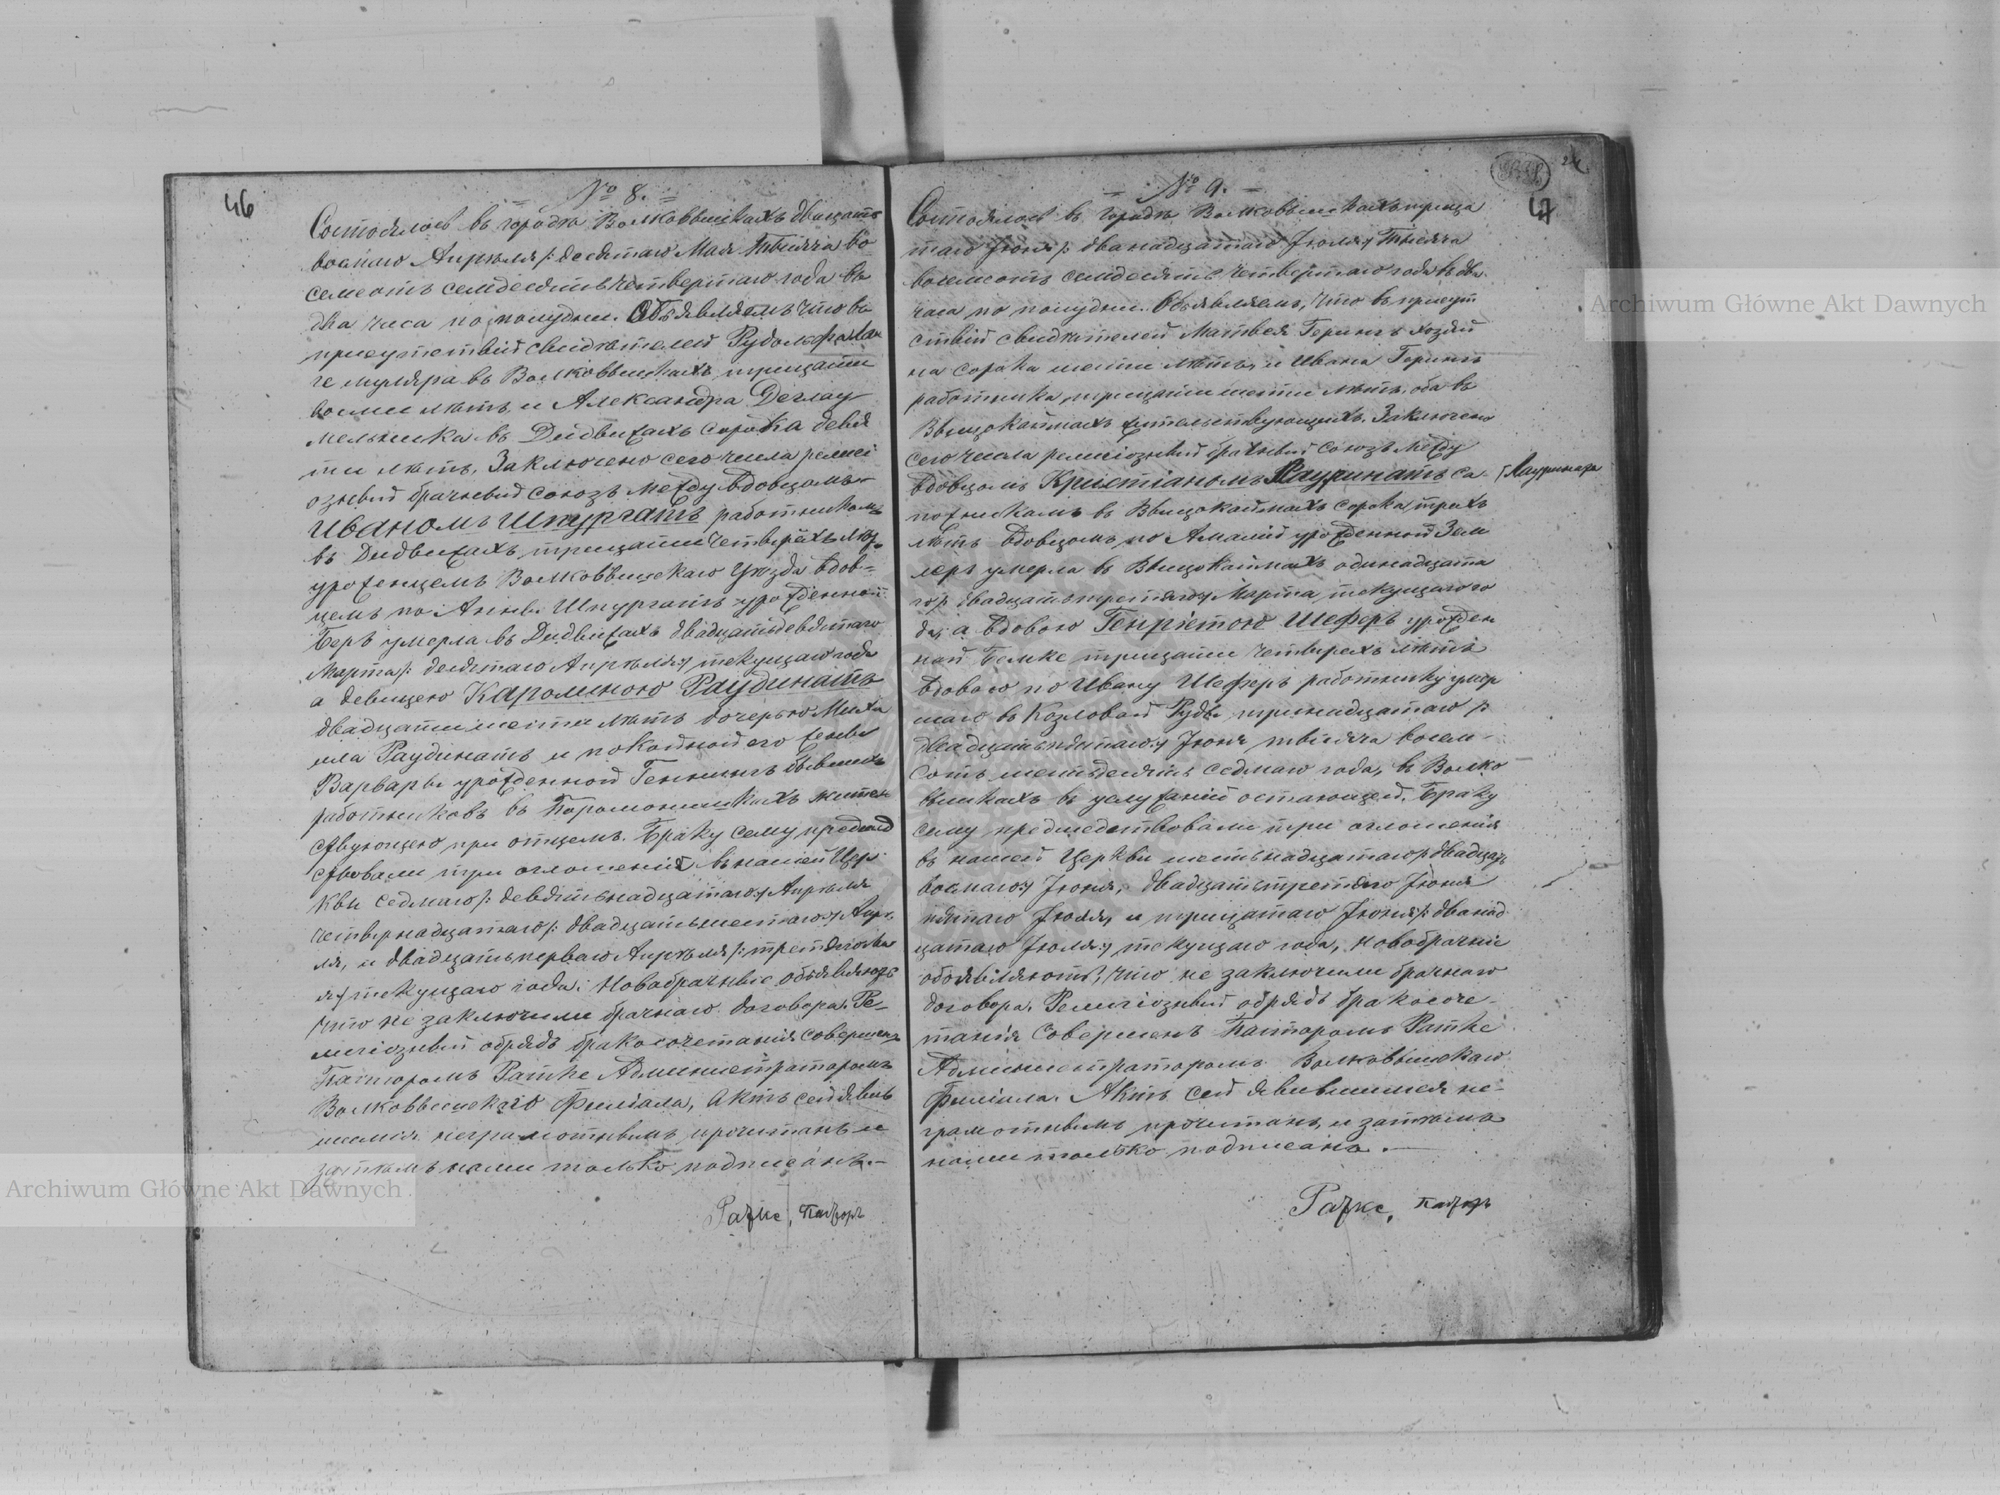 46
№ 8.
Состоялось въ городѣ Волковышкахъ двадцать
восмаго Апрѣля /: десятаго Мая :/ тысяча во
семсотъ семдесятъ четвертаго года въ
два часа по полудни. Объявляемъ что въ
присутствіи свидѣтелей Рудольфа
муляра въ Волковышкахъ тридцати
восми лѣтъ, и Александра Деглау
мельника въ Дидвижахъ сорока девя
ти лѣтъ, Заключено сего числа религі
озный брачный союзъ между вдовцомъ
Иваномъ Шпургатъ работникомъ
въ Дидвижахъ, тридцати четырехъ лѣтъ
уроженцемъ Волковышскаго Уѣзда вдов-
цемъ по Аннѣ Шпургатъ урожденной
Беръ умерла въ Дидвижахъ двадцать девятаго
Марта /: десятаго Апрѣля :/ текущаго года
а девицею Каролиною Раудинатъ
двадцати шести лѣтъ дочерью Миха
ила Раудинатъ и покойной его жены
Варвары урожденной Геннингъ бывшихъ
работниковъ въ жител
ствующею при отцемъ. Браку сему предшед
ствовали три оглошенія въ нашей Цер
кви седмаго /: девятьнадцатаго :/ Апрѣля
четырнадцатаго /: двадцать шестаго :/ Апрѣ
ля, и двадцать перваго Апрѣля /: третяго Ма
я :/ текущаго года: Новобрачные объявляютъ
что не заключили брачнаго договора. Ре-
лигіозный обрядъ бракосочетанія совершенъ
Пасторомъ Ратке Администраторомъ
Волковышскаго Филіала, Актъ сей явив
шимся неграмотнымъ прочитанъ и
затѣмъ нами только подписанъ.—
Ратке, Пасторъ
24
47
№ 9.
Состоялось въ городѣ Волковышкахъ тридца
таго Іюня /: двѣнадцатаго Іюля :/ тысяча
восемсотъ семдесятъ четвертаго года въ два
часа по полудни. Объявляемъ, что въ присут
ствіи свидѣтелей Матвея Герингъ хозяи
на сорока шести лѣтъ, и Ивана Герингъ
работника, тридцати шести лѣтъ, оба въ
Выщокаймахъ жительствующихъ. Заключено
сего числа религіозный брачный союзъ между
вдовцомъ Кристіаномъ Лауринатъ са-
пожникомъ въ Выщокаймахъ сорока трехъ
лѣтъ вдовцомъ по Амаліи урожденной Зем
леръ умерла въ Выщокаймахъ одинадцата
го /: двадцать третяго :/ Марта, текущаго го
да, а вдовою Генріетою Шеферъ урожден
ной Белке тридцати четырехъ лѣтъ
вдовою по Ивану Шеферъ работнику умер
шаго въ Козловой Рудѣ, тринадцатаго /:
двадцать пятаго :/ Іюня тысяча восем-
сотъ шестьдесятъ седмаго года, въ Волко
вышкахъ въ услуженіи остающей. Браку
сему предшедствовали три оглошенія
въ нашей Церкви шестьнадцатаго /: двадцать
восмаго :/ Іюня, двадцать третяго Іюня
пятаго Іюля, и тридцатаго Іюня /: двѣнад
цатаго Іюля :/ текущаго года, Новобрачніе
объявляютъ, что не заключили брачнаго
договора. Религіозный обрядъ бракосоче-
танія совершенъ Пасторомъ Ратке
Администраторомъ Волковышскаго
Филіала. Актъ сей явившимся не-
грамотнымъ прочитанъ, и затѣмъ
нами только подписанъ.—
Ратке, Пасторъ
Archiwum Główne Akt Dawnych
Archiwum Główne Akt Dawnych